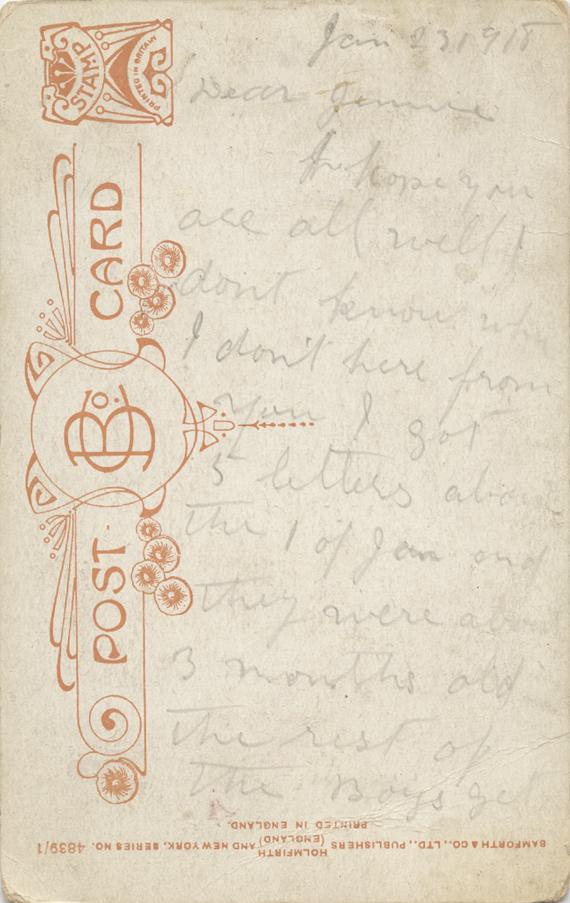 Jan 23 1918
Dear Jennie
hope you
are all well I
dont know why
I don't here from
you I got
5 letters about
the 1 of Jan and
they were about
3 months old
the rest of
the Boys get
STAMP
PRINTED IN BRITAIN
POST CARD
B & Co.
BAMFORTH & CO., LTD., PUBLISHERS HOLMFIRTH (ENGLAND) AND NEW YORK, SERIES NO. 4839/1
PRINTED IN ENGLAND.